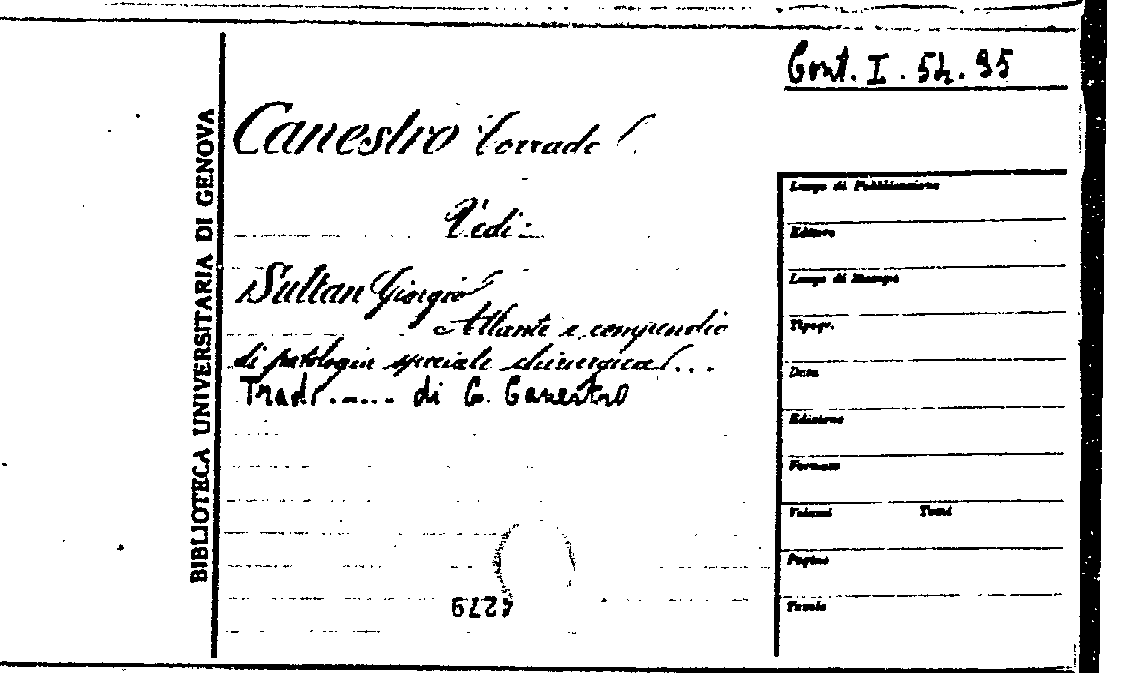 Cont. I. 54. 95
BIBLIOTECA UNIVERSITARIA DI GENOVA
Canestro Corrado
Vedi:
Sultan Giorgio
Atlante e compendio
di patologia speciale chirurgica...
Trad. .... di C. Canestro
Luogo di Pubblicazione
Editore
Luogo di Stampa
Tipogr.
Data
Edizione
Formato
Volumi Tomi
Pagine
Tavole